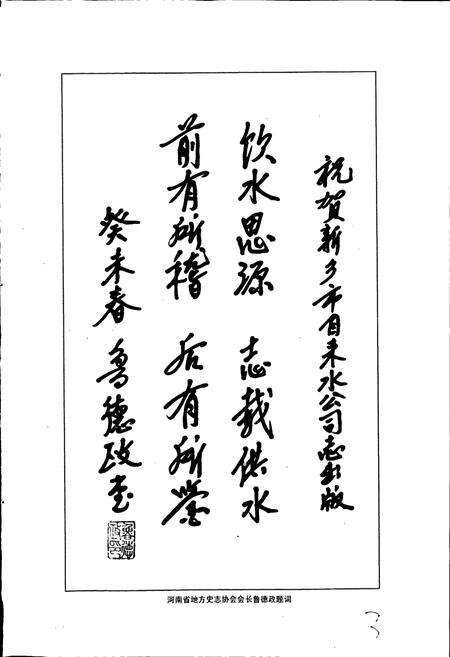 祝贺新乡市自来水公司志出版
饮水思源 志载供水
前有所稽 后有所鉴
癸未春 鲁德政书
河南省地方史志协会会长鲁德政题词